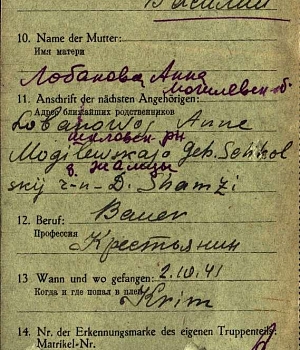 Василий
10. Name der Mutter:
Имя матери
Лобанова Анна
Могилевск. об.
11. Anschrift der nächsten Angehörigen:
Адрес ближайших родственников
Lobanowa Anne
р-н
Mogilewskaja Geb.
д.
skij r-n D. Shamzi
12. Beruf: Bauer
Профессия
Крестьянин
13 Wann und wo gefangen: 2.10.41
Когда и где попал в плен
Krim
14. Nr. der Erkennungsmarke des eigenen Truppenteils
Matrikel-Nr.